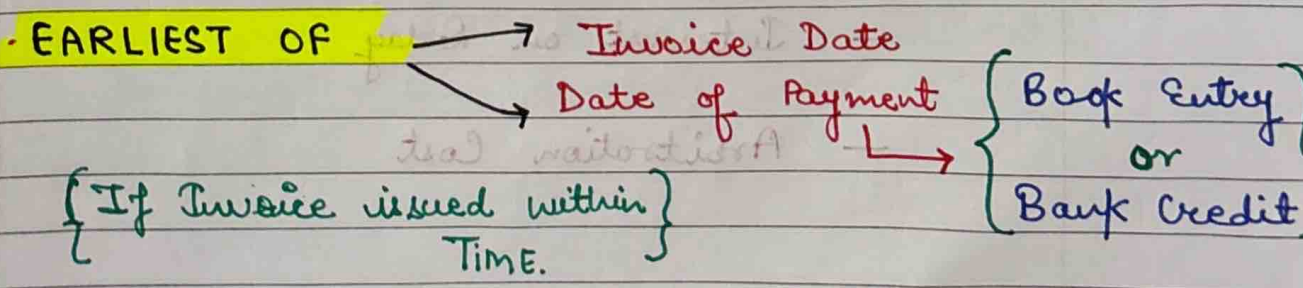 · EARLIEST OF → Invoice Date
→ Date of Payment ↳ { Book Entry
or
Bank Credit }
{ If Invoice issued within
TIME. }